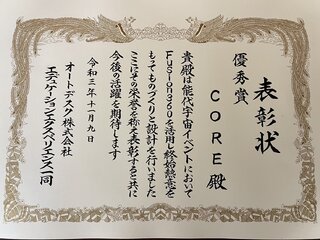 表彰状
優秀賞
CORE殿
貴殿は能代宇宙イベントにおいて
Fusion360を活用し終始熱意を
もって、ものづくりと設計を行いました
ここにその栄誉を称え表彰すると共に
今後の活躍を期待します
令和三年十一月九日
オートデスク株式会社
エデュケーションエクスペリエンス一同